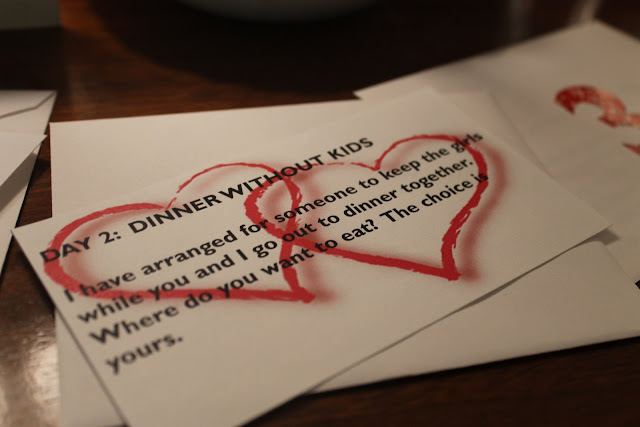 DAY 2: DINNER WITHOUT KIDS
I have arranged for someone to keep the girls
while you and I go out to dinner together.
Where do you want to eat? The choice is
yours.